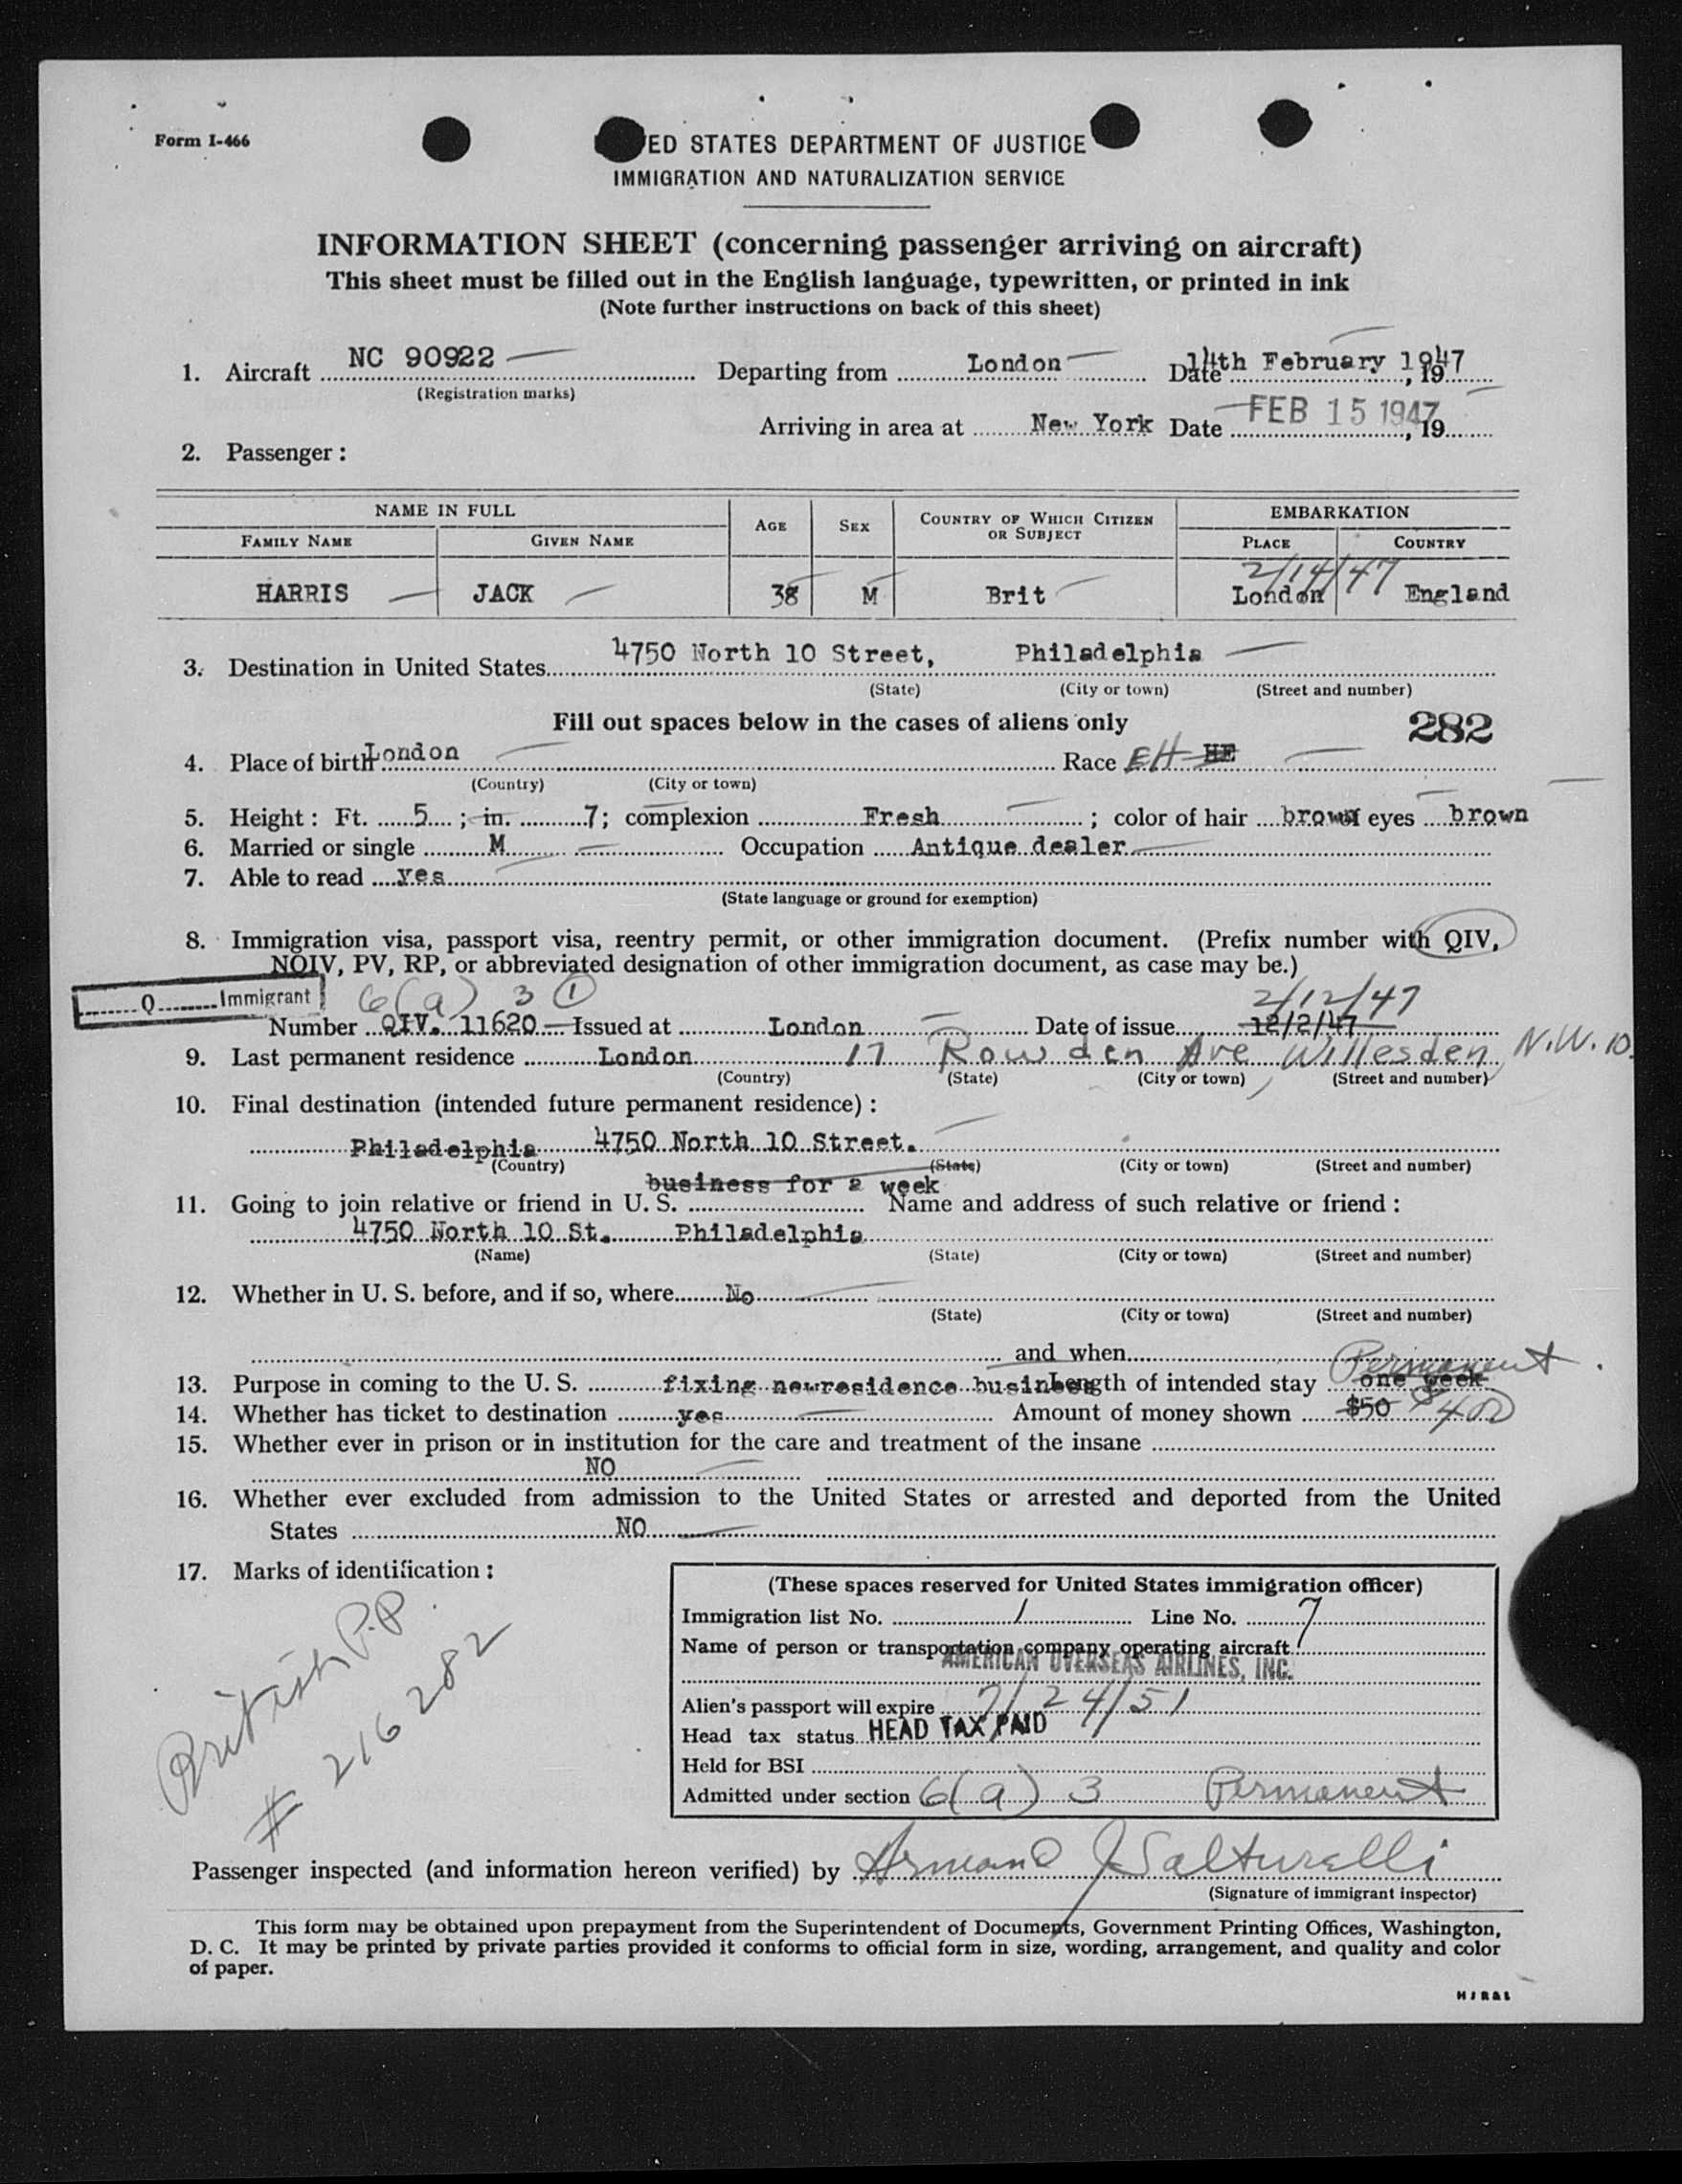 Form I-466
ED STATES DEPARTMENT OF JUSTICE
IMMIGRATION AND NATURALIZATION SERVICE
INFORMATION SHEET (concerning passenger arriving on aircraft)
This sheet must be filled out in the English language, typewritten, or printed in ink
(Note further instructions on back of this sheet)
1. Aircraft NC 90922 Departing from London Date 14th February 1947, 19
(Registration marks)
Arriving in area at New York Date FEB 15 1947, 19
2. Passenger:
NAME IN FULL AGE SEX COUNTRY OF WHICH CITIZEN OR SUBJECT EMBARKATION
FAMILY NAME GIVEN NAME PLACE COUNTRY
2/14/47
HARRIS JACK 38 M Brit London England
3. Destination in United States 4750 North 10 Street, Philadelphia
(State) (City or town) (Street and number)
Fill out spaces below in the cases of aliens only 282
4. Place of birth London Race EH HE
(Country) (City or town)
5. Height: Ft. 5; in. 7; complexion Fresh; color of hair brown of eyes brown
6. Married or single M Occupation Antique dealer
7. Able to read yes
(State language or ground for exemption)
8. Immigration visa, passport visa, reentry permit, or other immigration document. (Prefix number with QIV,
NQIV, PV, RP, or abbreviated designation of other immigration document, as case may be.)
Q Immigrant 6(a) 3 1 2/12/47
Number QIV. 11620 Issued at London Date of issue 12/2/47
9. Last permanent residence London 17 Rowden Ave Willesden N.W. 10.
(Country) (State) (City or town) (Street and number)
10. Final destination (intended future permanent residence):
Philadelphia 4750 North 10 Street.
(Country) (State) (City or town) (Street and number)
business for a week
11. Going to join relative or friend in U. S. Name and address of such relative or friend:
4750 North 10 St. Philadelphia
(Name) (State) (City or town) (Street and number)
12. Whether in U. S. before, and if so, where No
(State) (City or town) (Street and number)
and when Permanent
13. Purpose in coming to the U. S. fixing new residence business Length of intended stay one week
14. Whether has ticket to destination yes Amount of money shown $50 $400
15. Whether ever in prison or in institution for the care and treatment of the insane
NO
16. Whether ever excluded from admission to the United States or arrested and deported from the United
States NO
17. Marks of identification:
British P.P.
# 216282
(These spaces reserved for United States immigration officer)
Immigration list No. 1 Line No. 7
Name of person or transportation company operating aircraft
AMERICAN OVERSEAS AIRLINES, INC.
Alien's passport will expire 7/24/51
Head tax status HEAD TAX PAID
Held for BSI
Admitted under section 6(a) 3 Permanent
Passenger inspected (and information hereon verified) by Armand J Salturelli
(Signature of immigrant inspector)
This form may be obtained upon prepayment from the Superintendent of Documents, Government Printing Offices, Washington,
D. C. It may be printed by private parties provided it conforms to official form in size, wording, arrangement, and quality and color
of paper.